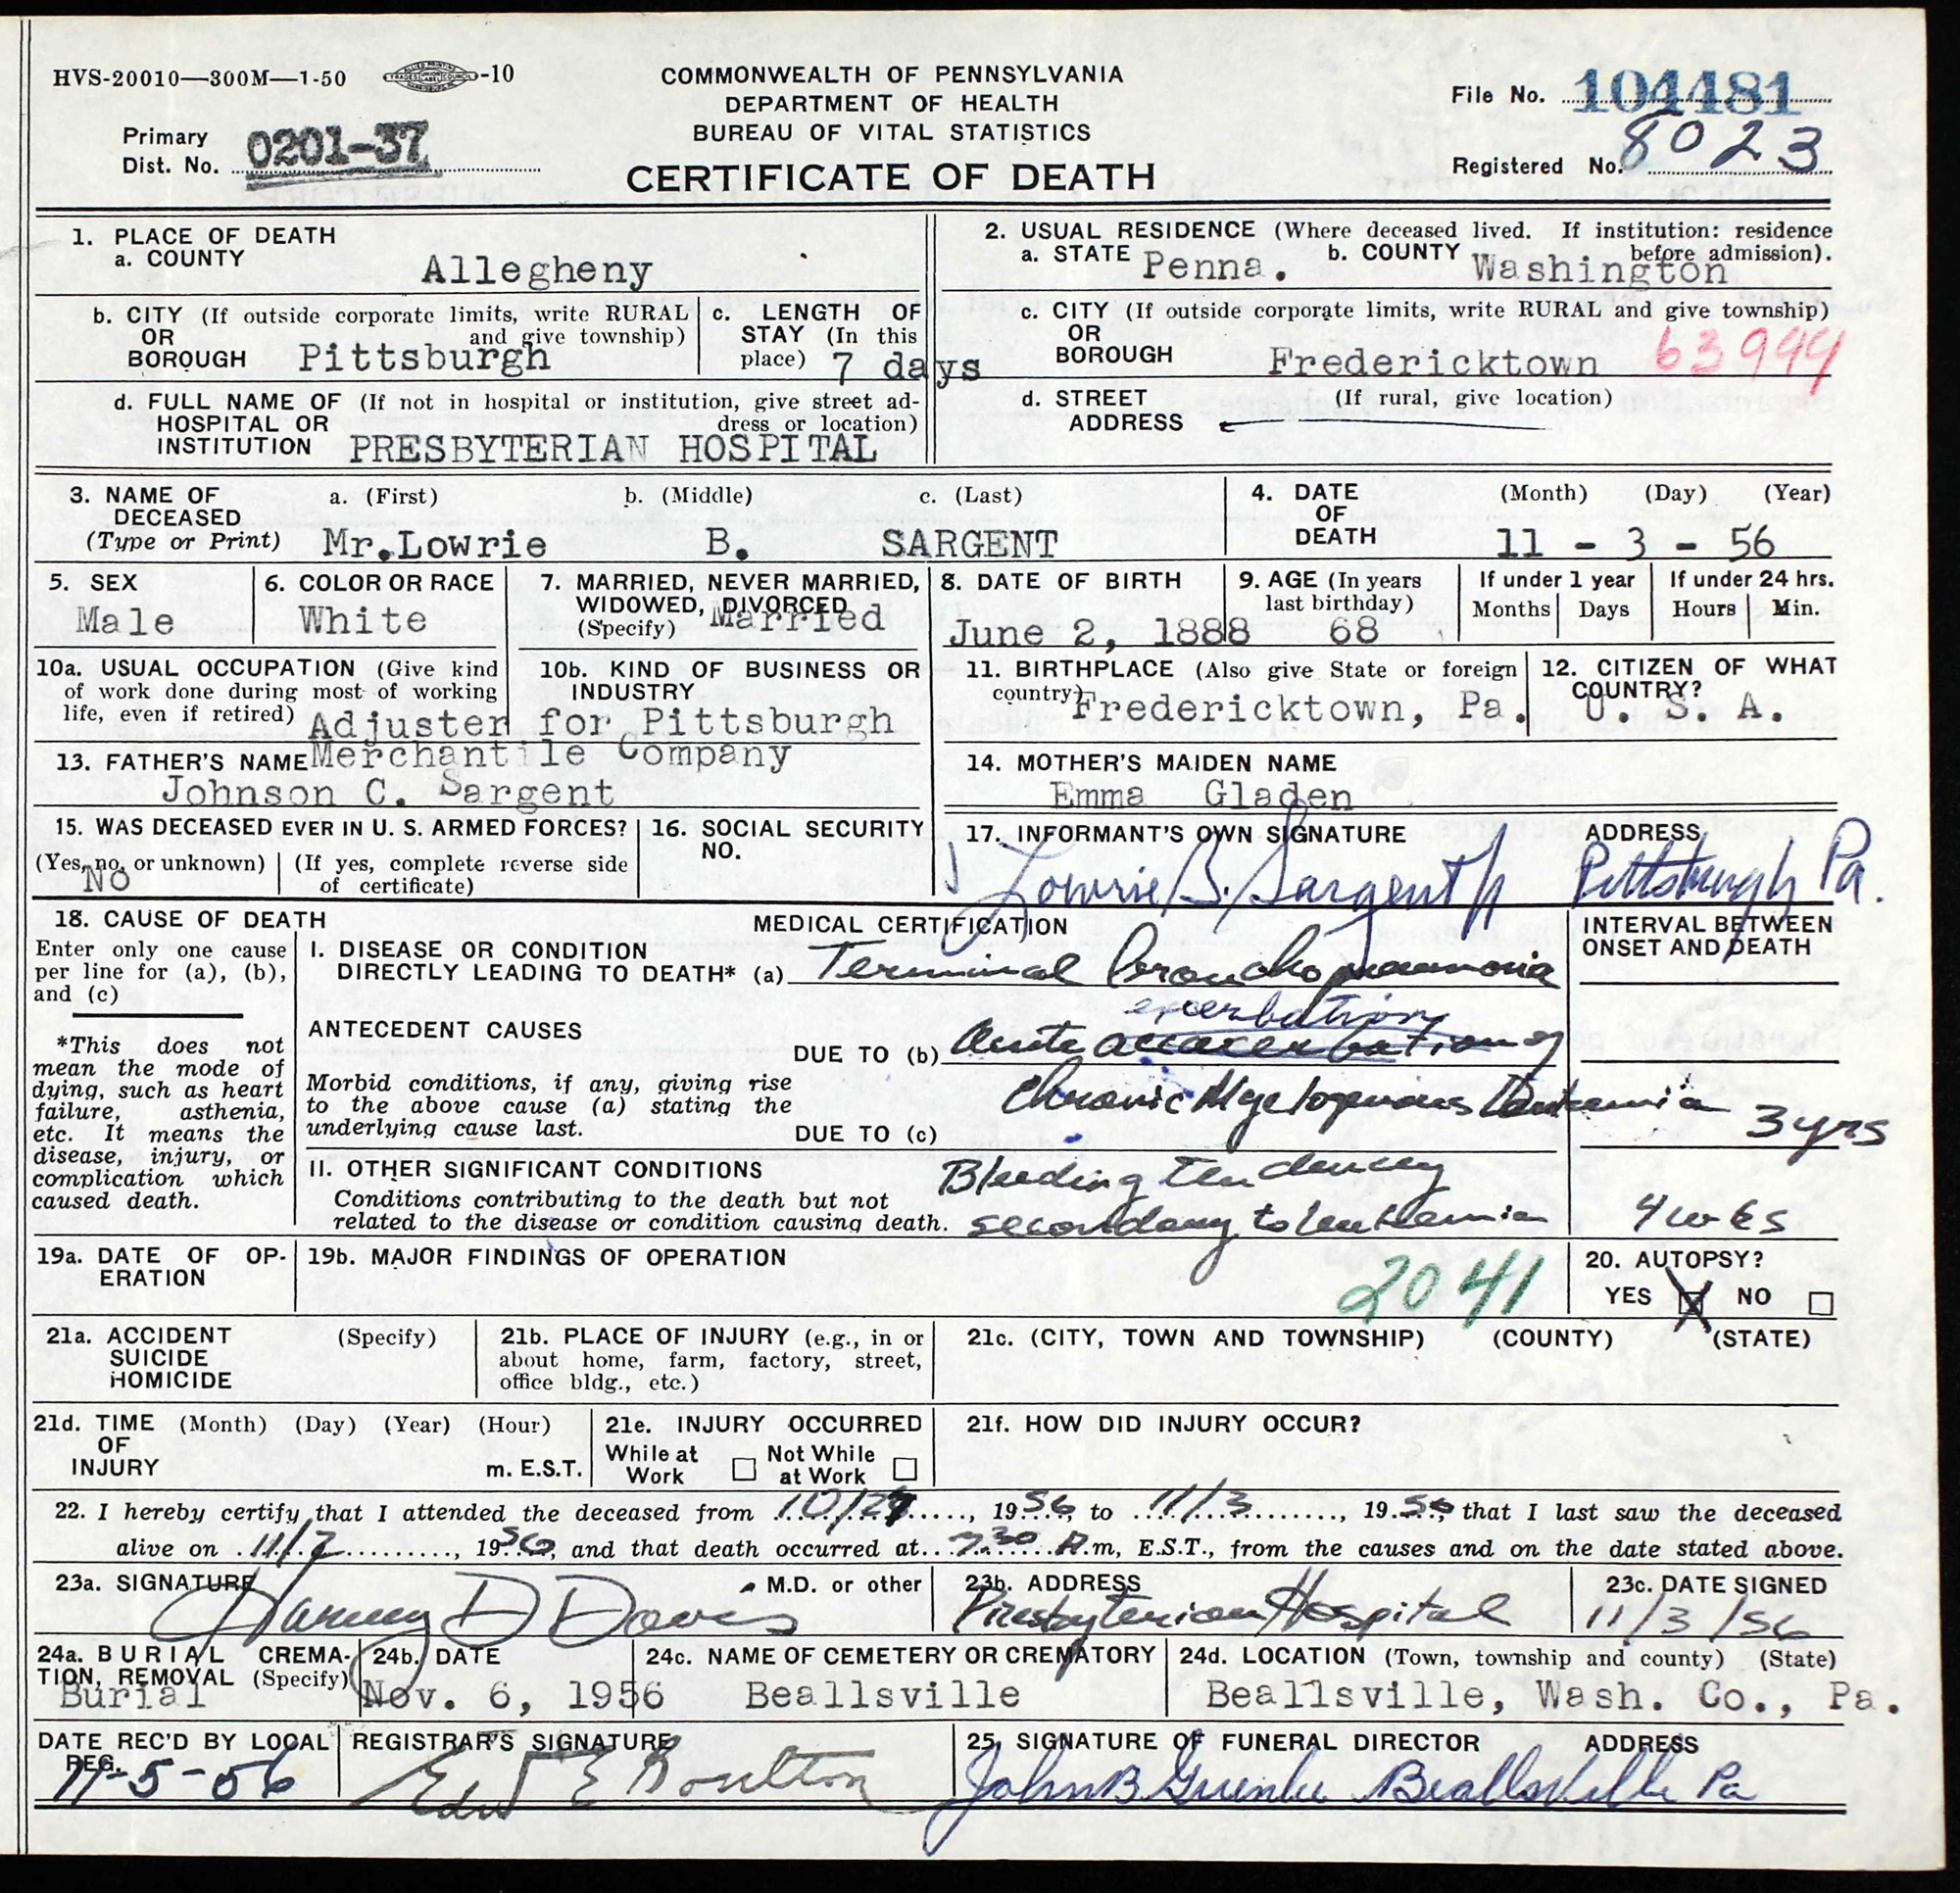 HVS-20010—300M—1-50 -10
COMMONWEALTH OF PENNSYLVANIA
DEPARTMENT OF HEALTH
BUREAU OF VITAL STATISTICS
CERTIFICATE OF DEATH
Primary
Dist. No. 0201-37
File No. 104481
Registered No. 8023
1. PLACE OF DEATH
a. COUNTY
Allegheny
b. CITY (If outside corporate limits, write RURAL
OR and give township)
BOROUGH Pittsburgh
c. LENGTH OF
STAY (In this
place) 7 days
d. FULL NAME OF (If not in hospital or institution, give street ad-
HOSPITAL OR dress or location)
INSTITUTION PRESBYTERIAN HOSPITAL
2. USUAL RESIDENCE (Where deceased lived. If institution: residence
before admission).
a. STATE Penna. b. COUNTY Washington
c. CITY (If outside corporate limits, write RURAL and give township)
OR
BOROUGH Fredericktown 63944
d. STREET (If rural, give location)
ADDRESS
3. NAME OF a. (First) b. (Middle) c. (Last)
DECEASED
(Type or Print) Mr.Lowrie B. SARGENT
4. DATE (Month) (Day) (Year)
OF
DEATH 11 - 3 - 56
5. SEX
Male
6. COLOR OR RACE
White
7. MARRIED, NEVER MARRIED,
WIDOWED, DIVORCED
(Specify) Married
8. DATE OF BIRTH
June 2, 1888
9. AGE (In years
last birthday)
68
If under 1 year
Months Days
If under 24 hrs.
Hours Min.
10a. USUAL OCCUPATION (Give kind
of work done during most of working
life, even if retired)
10b. KIND OF BUSINESS OR
INDUSTRY
Adjuster for Pittsburgh
Merchantile Company
11. BIRTHPLACE (Also give State or foreign
country) Fredericktown, Pa.
12. CITIZEN OF WHAT
COUNTRY?
U. S. A.
13. FATHER'S NAME
Johnson C. Sargent
14. MOTHER'S MAIDEN NAME
Emma Gladen
15. WAS DECEASED EVER IN U. S. ARMED FORCES?
(Yes, no, or unknown) (If yes, complete reverse side
of certificate)
NO
16. SOCIAL SECURITY
NO.
17. INFORMANT'S OWN SIGNATURE ADDRESS
Lowrie B. Sargent Jr Pittsburgh Pa.
18. CAUSE OF DEATH
Enter only one cause
per line for (a), (b),
and (c)
*This does not
mean the mode of
dying, such as heart
failure, asthenia,
etc. It means the
disease, injury, or
complication which
caused death.
MEDICAL CERTIFICATION
INTERVAL BETWEEN
ONSET AND DEATH
I. DISEASE OR CONDITION
DIRECTLY LEADING TO DEATH* (a) Terminal bronchopneumonia
ANTECEDENT CAUSES
exerbation
DUE TO (b) Acute of
Morbid conditions, if any, giving rise
to the above cause (a) stating the
underlying cause last.
Chronic Myelogenous Leukemia 3 yrs
DUE TO (c)
II. OTHER SIGNIFICANT CONDITIONS
Conditions contributing to the death but not
related to the disease or condition causing death.
Bleeding tendency
secondary to leukemia 4 wks
19a. DATE OF OP-
ERATION
19b. MAJOR FINDINGS OF OPERATION
2041
20. AUTOPSY?
YES X NO
21a. ACCIDENT (Specify)
SUICIDE
HOMICIDE
21b. PLACE OF INJURY (e.g., in or
about home, farm, factory, street,
office bldg., etc.)
21c. (CITY, TOWN AND TOWNSHIP) (COUNTY) (STATE)
21d. TIME (Month) (Day) (Year) (Hour)
OF
INJURY m. E.S.T.
21e. INJURY OCCURRED
While at Not While
Work at Work
21f. HOW DID INJURY OCCUR?
22. I hereby certify that I attended the deceased from 10/27, 1956, to 11/3, 1956, that I last saw the deceased
alive on 11/2, 1956, and that death occurred at 7:30 A.m, E.S.T., from the causes and on the date stated above.
23a. SIGNATURE M.D. or other
Harvey D Davis
23b. ADDRESS
Presbyterian Hospital
23c. DATE SIGNED
11/3/56
24a. BURIAL CREMA-
TION, REMOVAL (Specify)
Burial
24b. DATE
Nov. 6, 1956
24c. NAME OF CEMETERY OR CREMATORY
Beallsville
24d. LOCATION (Town, township and county) (State)
Beallsville, Wash. Co., Pa.
DATE REC'D BY LOCAL
REG.
11-5-56
REGISTRAR'S SIGNATURE
Edw E Boulton
25. SIGNATURE OF FUNERAL DIRECTOR ADDRESS
John B Beallsville Pa